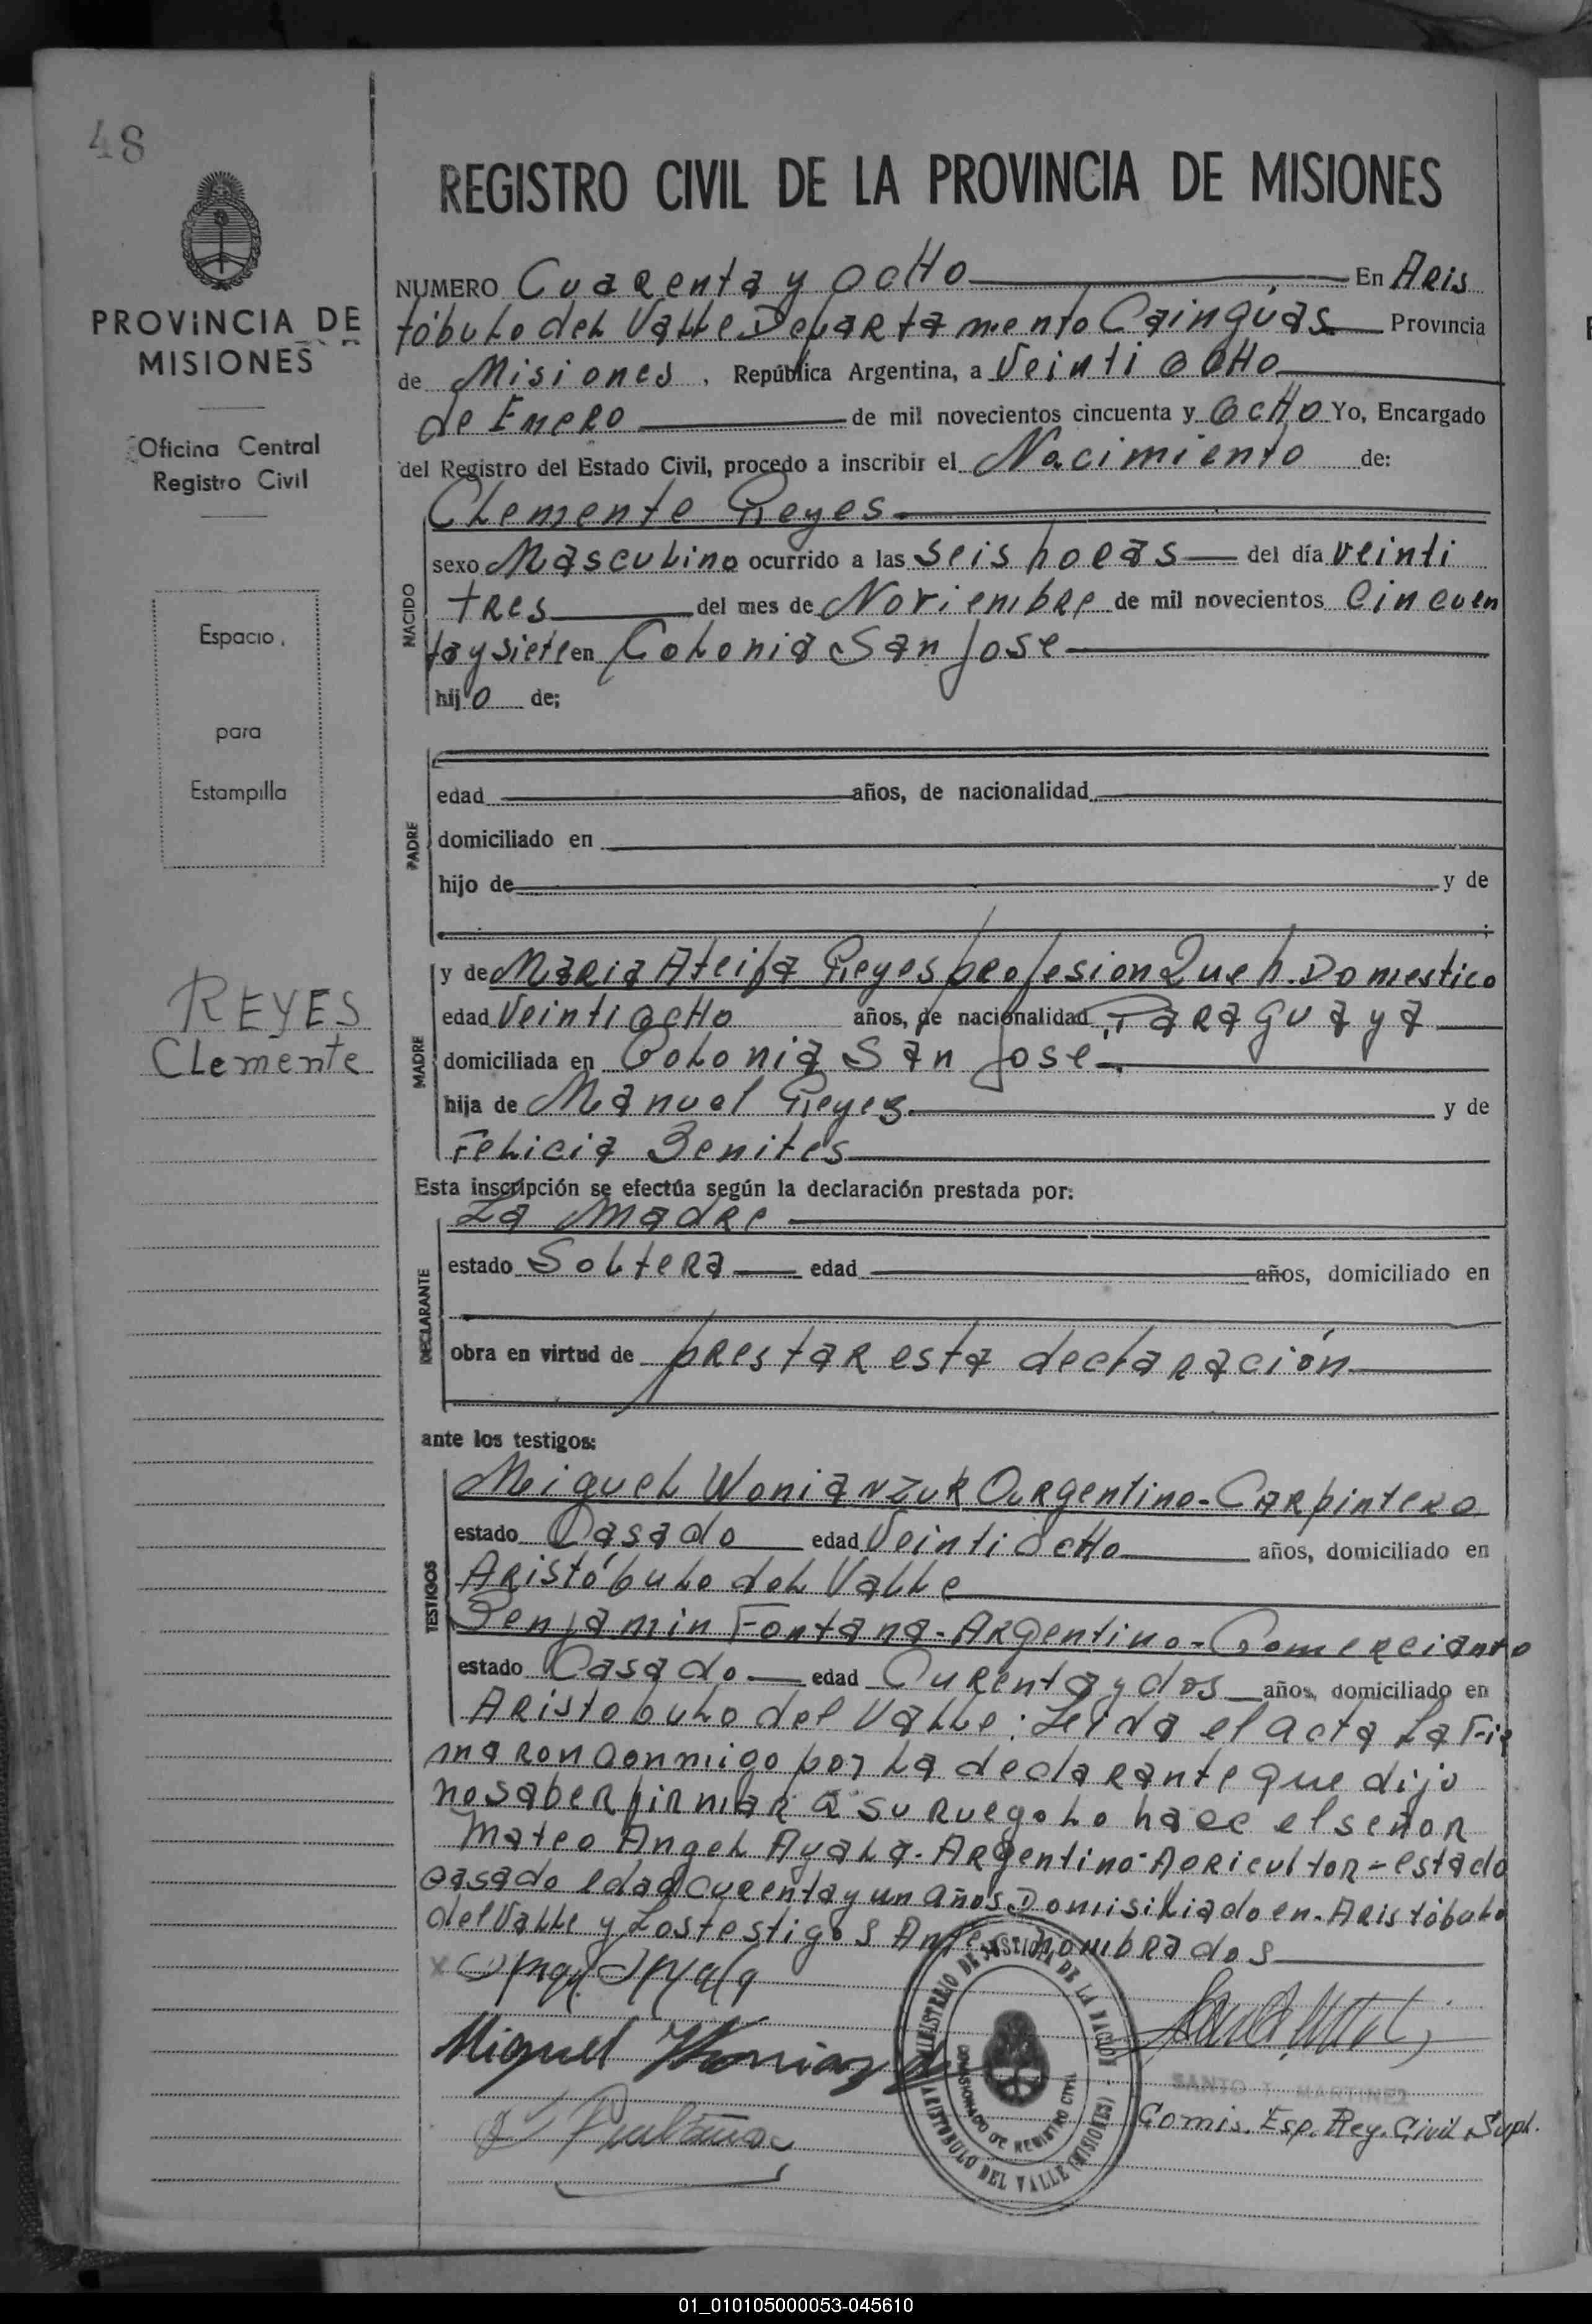 48
PROVINCIA DE
MISIONES
Oficina Central
Registro Civil
Espacio
para
Estampilla
REYES
Clemente
REGISTRO CIVIL DE LA PROVINCIA DE MISIONES
NUMERO Cuarenta y ocHo En Aris
tóbulo del Valle Departamento Cainguás Provincia
de Misiones, República Argentina, a Veinti ocHo
de Enero de mil novecientos cincuenta y ocHo Yo, Encargado
del Registro del Estado Civil, procedo a inscribir el Nacimiento de:
Clemente Reyes
NACIDO
sexo Masculino ocurrido a las seis horas del día veinti
tres del mes de Noviembre de mil novecientos Cincuen
ta y siete en Colonia San Jose
hijo de;
PADRE
edad años, de nacionalidad
domiciliado en
hijo de y de
MADRE
y de Maria Reyes profesion Queh. Domestico
edad Veinti ocHo años, de nacionalidad Paraguaya
domiciliada en Colonia San Jose
hija de Manuel Reyes y de
Felicia Benites
Esta inscripción se efectúa según la declaración prestada por:
La Madre
DECLARANTE
estado Soltera edad años, domiciliado en
obra en virtud de prestar esta declaración
ante los testigos:
TESTIGOS
Miguel Wonianzuk Argentino-Carpintero
estado Casado edad Veinti ocHo años, domiciliado en
Aristóbulo del Valle
Benjamin Fontana-Argentino-Comerciante
estado Casado edad Curenta y dos años, domiciliado en
Aristobulo del Valle: Leida el acta La Fir
maron conmigo por La declarante que dijo
no saber firmar a su ruego Lo hace el señor
Mateo Angel Ayala-Argentino-Agricultor-estado
casado edad curenta y un años Domisiliado en-Aristóbulo
del Valle y Los testigos Ante nombrados
x Angel Ayala
Miguel
MINISTERIO DE JUSTICIA DE LA NACION
COMISIONADO DE REGISTRO CIVIL
ARISTOBULO DEL VALLE (MISIONES)
SANTO T. MARTINEZ
Comis. Esp. Reg. Civil Supl.
01_010105000053-045610